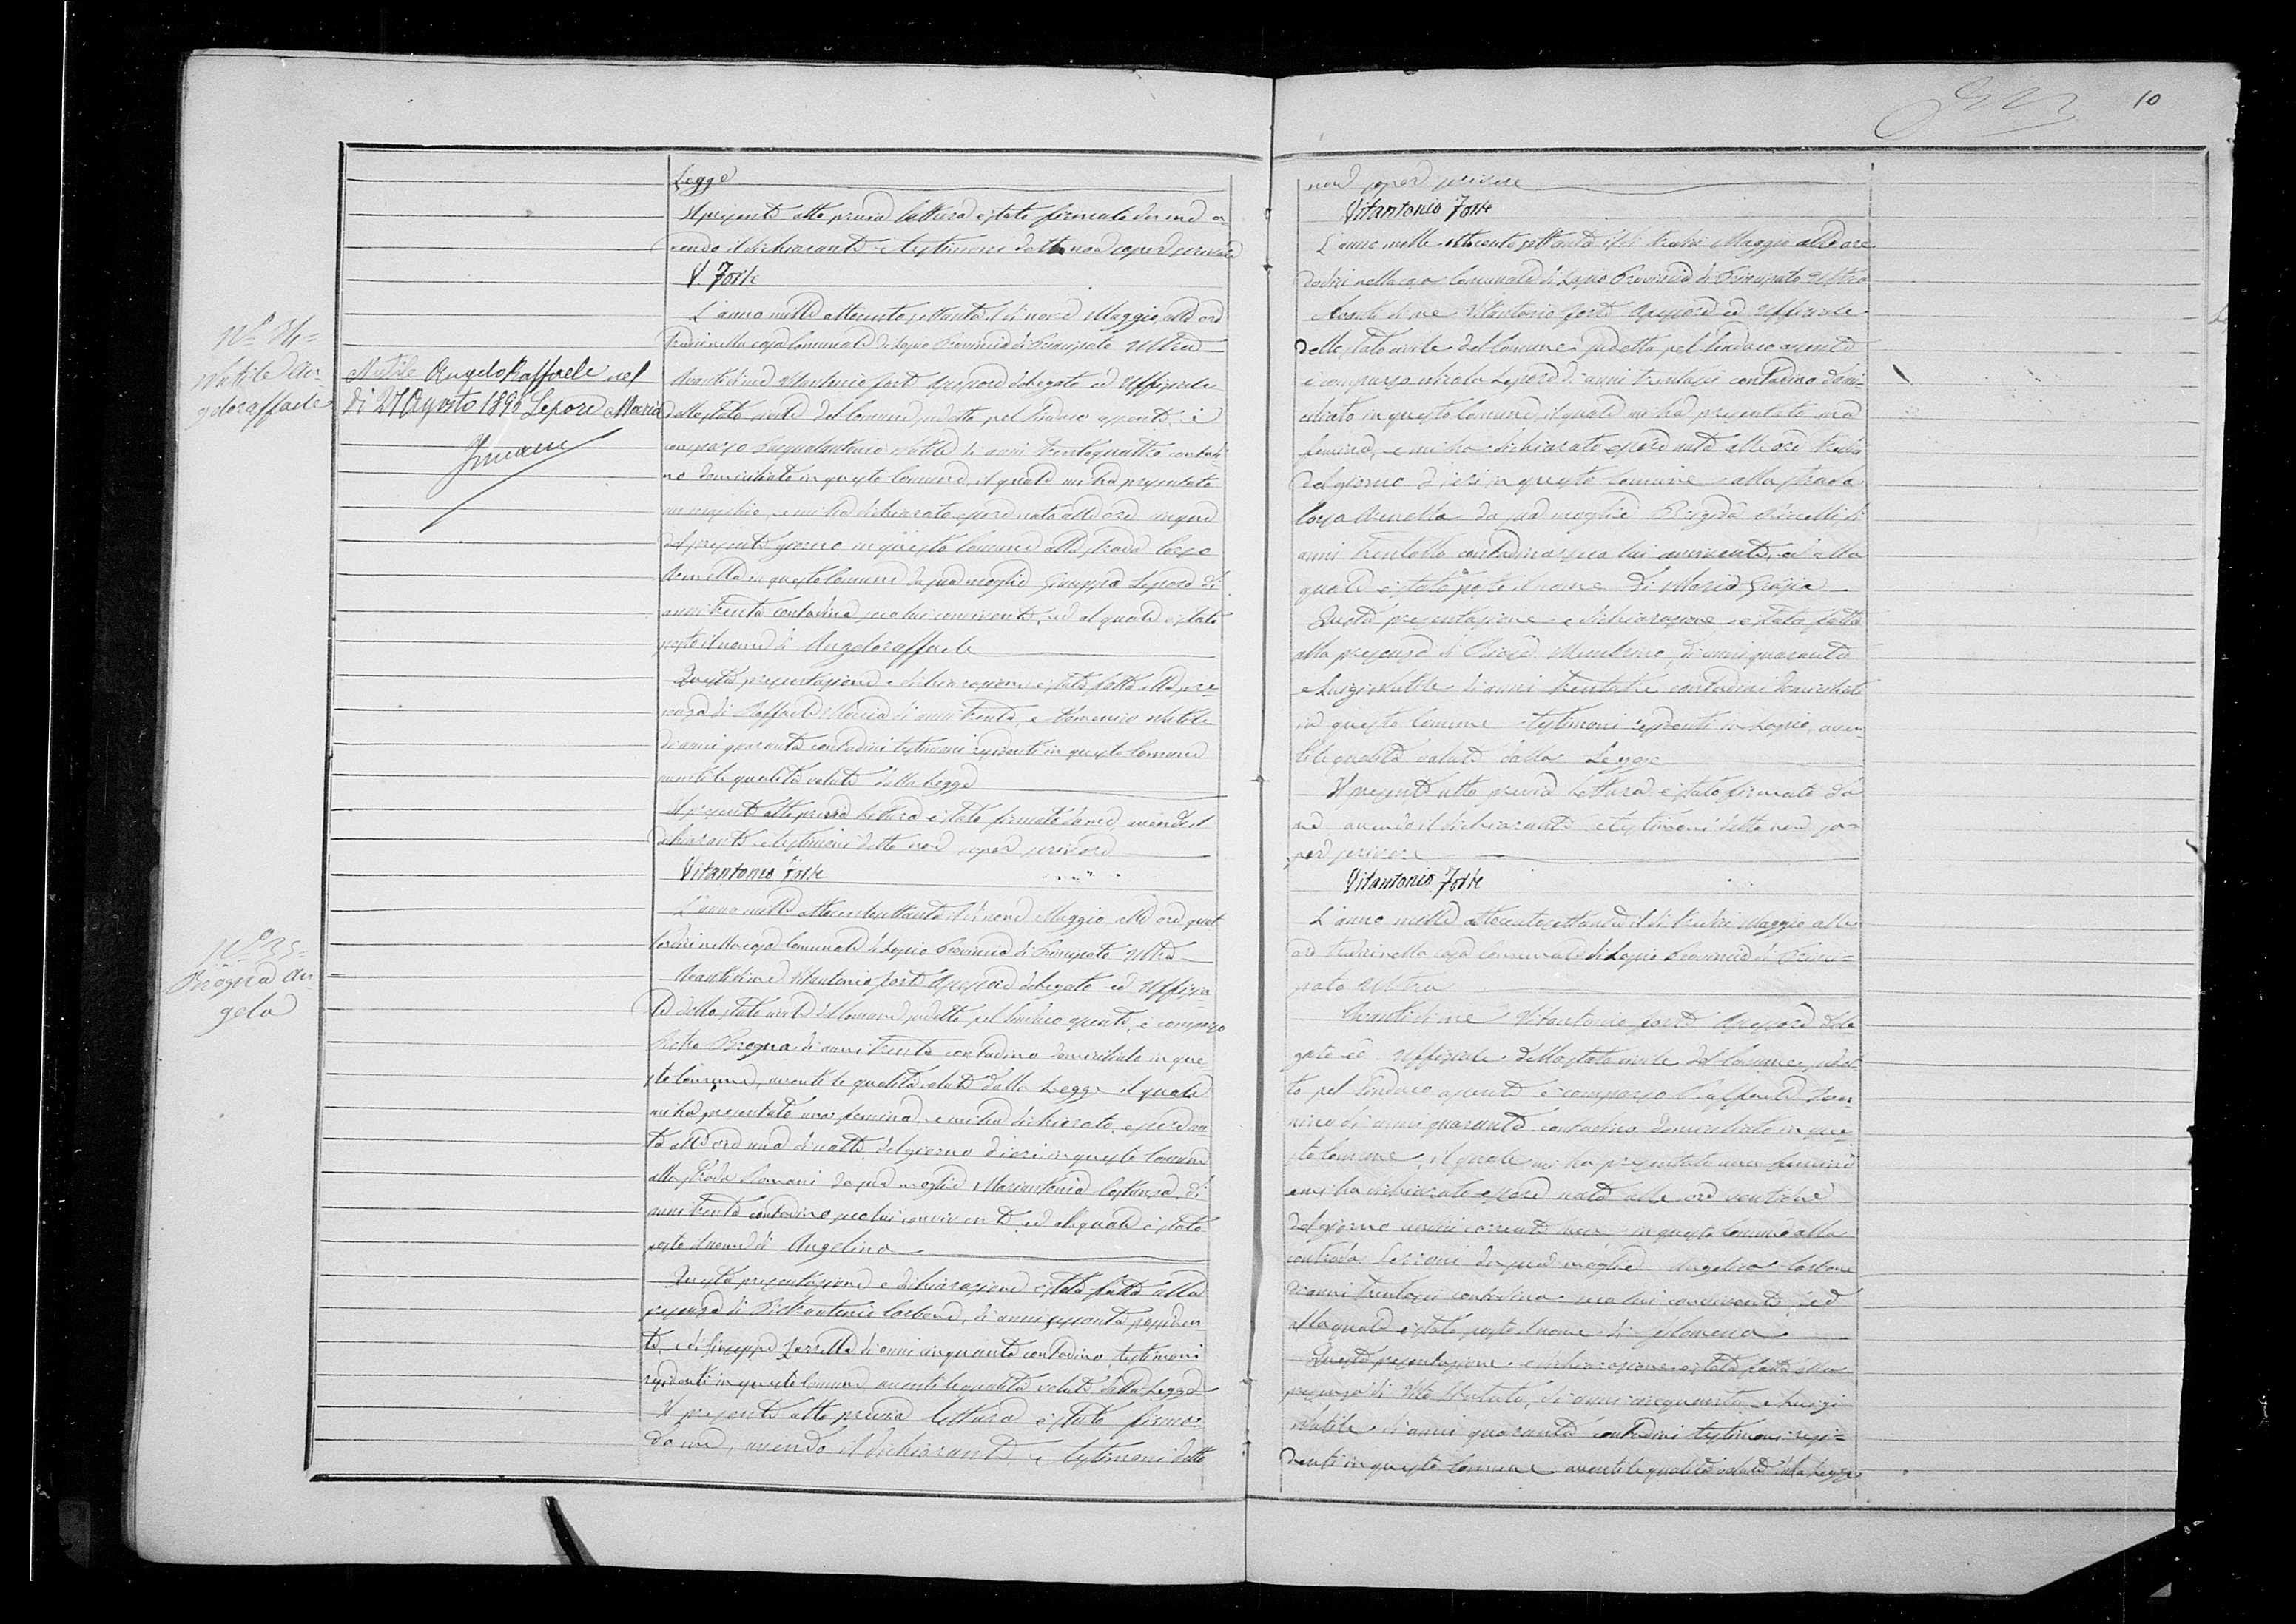 10
Legge
Il presente atto previa lettura è stato firmato da me a-
vendo il dichiarante e testimoni detto non saper scrivere
V. Forte
N° 34=
Natile An-
geloraffaele
Natile Angelo Raffaele nel
di 27 Agosto 1890 Lepore Maria
L'anno mille ottocento settanta il dì nove Maggio, alle ore
tredici nella casa Comunale di Lapio Provincia di Principato Ultra
Avanti di me Vitantonio Forte Assessore delegato ed Uffiziale
dello stato civile del Comune pel Sindaco assente, è
comparso Pasqualantonio Natile di anni trentaquattro contadi-
no domiciliato in questo Comune, il quale mi ha presentato
un maschio, e mi ha dichiarato essere nato alle ore cinque
del presente giorno in questo Comune alla strada Corso
in questo Comune da sua moglie Giuseppa Lepore di
anni trenta contadina seco lui convivente, ed al quale è stato
posto il nome di Angeloraffaele
Questa presentazione e dichiarazione è stata fatta alla pre-
senza di Raffaele di anni trenta, e Domenico Natile
di anni quaranta contadini testimoni residenti in questo Comune
aventi le qualità volute dalla Legge
Il presente atto previa lettura è stato firmato da me, avendo il
dichiarante e testimoni detto non saper scrivere
Vitantonio Forte
N° 35=
Brogna An-
gela
L'anno mille ottocentosettanta il dì nove Maggio, alle ore quat-
tordici nella casa Comunale di Lapio Provincia di Principato Ultra
Avanti di me Vitantonio Forte Assessore delegato ed Uffizia-
le dello stato civile del Comune pel Sindaco assente, è comparso
Pietro Brogna di anni trenta contadino domiciliato in que-
sto Comune, aventi le qualità volute dalla Legge il quale
mi ha presentato una femina, e mi ha dichiarato, essere na-
ta alle ore una di notte del giorno di ieri in questo Comune
alla strada da sua moglie Mariantonia Costanza, di
anni trenta contadina seco lui convivente, ed al quale è stato
posto il nome di Angelina
Questa presentazione e dichiarazione è stata fatta alla
presenza di Pietrantonio Carbone, di anni sessanta possiden-
te, e di Giuseppe di anni cinquanta contadino, testimoni
residenti in questo Comune, aventi le qualità volute dalla Legge
Il presente atto previa lettura è stato firmato
da me, avendo il dichiarante e testimoni detto
non saper scrivere
Vitantonio Forte
L'anno mille ottocento settanta il dì tredici Maggio alle ore
dodici nella casa Comunale di Lapio Provincia di Principato Ultra
Avanti di me Vitantonio Forte Assessore ed Uffiziale
dello stato civile del Comune pel Sindaco assente
è comparso Nicola Lepore di anni trentasei contadino domi-
ciliato in questo Comune, il quale mi ha presentato una
femina, e mi ha dichiarato essere nata alle ore
del giorno di ieri in questo Comune alla strada
Corso da sua moglie Brigida di
anni trentotto contadina seco lui convivente, ed alla
quale è stato posto il nome di Maria Grazia
Questa presentazione e dichiarazione è stata fatta
alla presenza di di anni quaranta
e Luigi Natile di anni trentatre contadini domiciliati
in questo Comune testimoni residenti in Lapio, aven-
ti le qualità volute dalla Legge
Il presente atto previa lettura è stato firmato da
me avendo il dichiarante e testimoni detto non sa-
per scrivere
Vitantonio Forte
L'anno mille ottocentosettanta il dì tredici Maggio alle
ore tredici nella casa comunale di Lapio Provincia di Princi-
pato Ultra
Avanti di me Vitantonio Forte Assessore dele-
gato ed Uffiziale dello stato civile del Comune
pel Sindaco assente è comparso Raffaele
di anni quaranta contadino domiciliato in que-
sto Comune, il quale mi ha presentato una femina
e mi ha dichiarato essere nata alle ore ventidue
del giorno undici corrente mese in questo Comune alla
contrada da sua moglie Angelica Carbone
di anni trentasei contadina seco lui convivente, ed
alla quale è stato posto il nome di Filomena
Questa presentazione e dichiarazione è stata fatta alla
presenza di Vito di anni cinquanta, e Luigi
Natile di anni quaranta contadini testimoni resi-
denti in questo Comune aventi le qualità volute dalla Legge